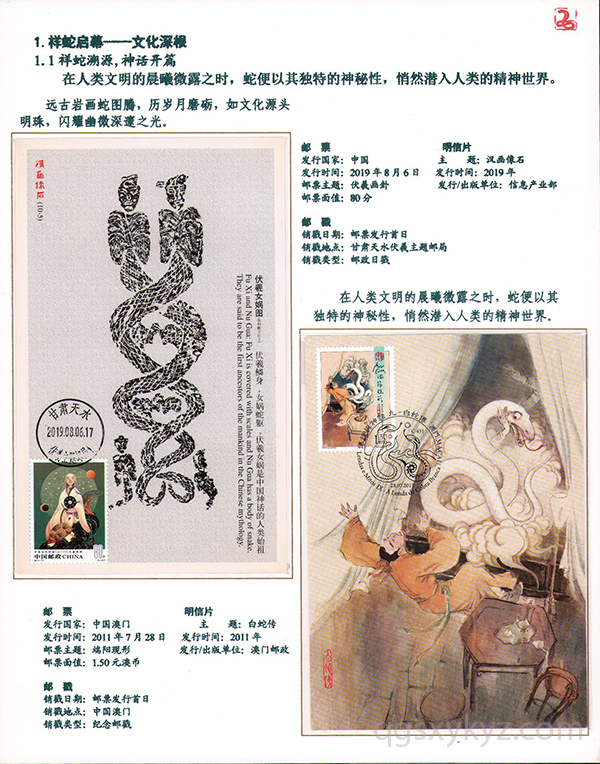 1.祥蛇启幕——文化深根
1.1祥蛇溯源,神话开篇
在人类文明的晨曦微露之时,蛇便以其独特的神秘性,悄然潜入人类的精神世界。
远古岩画蛇图腾,历岁月磨砺,如文化源头
明珠,闪耀幽微深邃之光。
邮 票
发行国家:中国
发行时间:2019年8月6日
邮票主题:伏羲画卦
邮票面值:80分
明信片
主 题:汉画像石
发行时间:2019年
发行/出版单位:信息产业部
邮 戳
销戳日期:邮票发行首日
销戳地点:甘肃天水伏羲主题邮局
销戳类型:邮政日戳
汉画像石
(10-5)
伏羲女娲图
伏羲鳞身,女娲蛇躯,伏羲女娲是中国神话的人类始祖
Fu Xi and Nu Gua: Fu Xi is covered with scales and Nu Gua has a body of snake.
They are said to be the first ancestors of the mankind in the Chinese mythology.
甘肃天水
2019.08.06.17
80分
中国邮政 CHINA
在人类文明的晨曦微露之时,蛇便以其
独特的神秘性,悄然潜入人类的精神世界。
邮 票
发行国家:中国澳门
发行时间:2011年7月28日
邮票主题:端阳现形
邮票面值:1.50元澳币
明信片
主 题:白蛇传
发行时间:2011年
发行/出版单位:澳门邮政
邮 戳
销戳日期:邮票发行首日
销戳地点:中国澳门
销戳类型:纪念邮戳
qgsxykyz.com